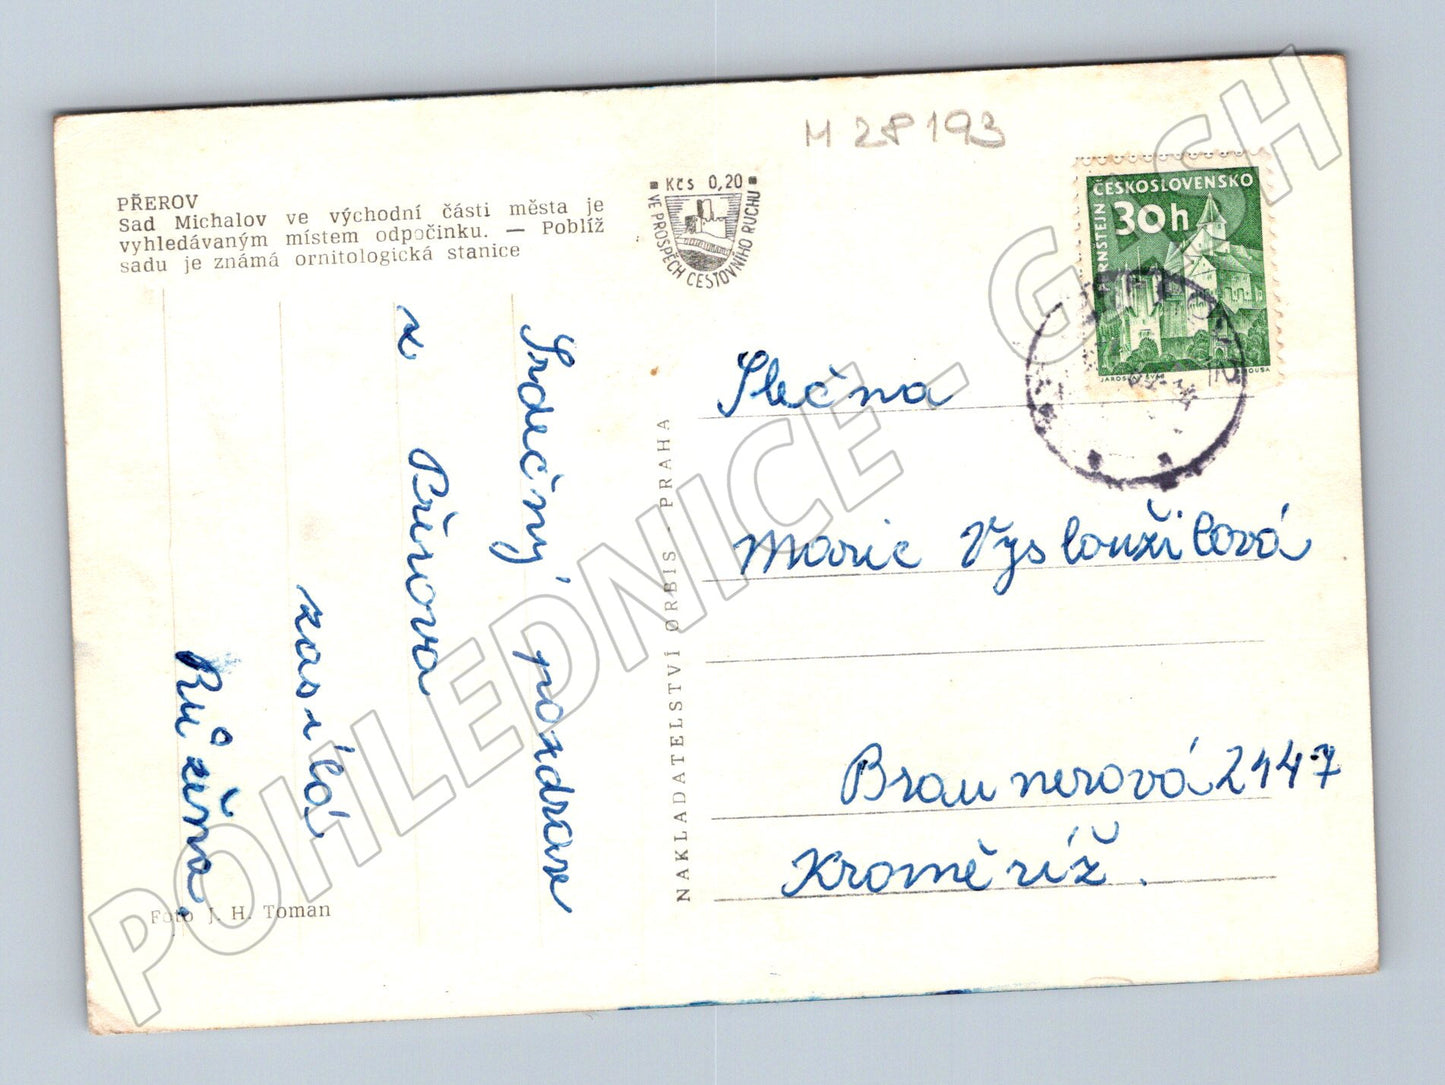 M 28193
PŘEROV
Sad Michalov ve východní části města je
vyhledávaným místem odpočinku. — Poblíž
sadu je známá ornitologická stanice
Kčs 0,20
VE PROSPĚCH CESTOVNÍHO RUCHU
ČESKOSLOVENSKO
30h
RNŠTEJN
JAROSLAV ŠVÁB
Srdečný pozdrav
z Přerova
zasílá
Růžena.
Slečna
Marie Vysloužilová
Braunerová 2147
Kroměříž.
NAKLADATELSTVÍ ORBIS - PRAHA
Foto J. H. Toman
POHLEDNICE - G
SH